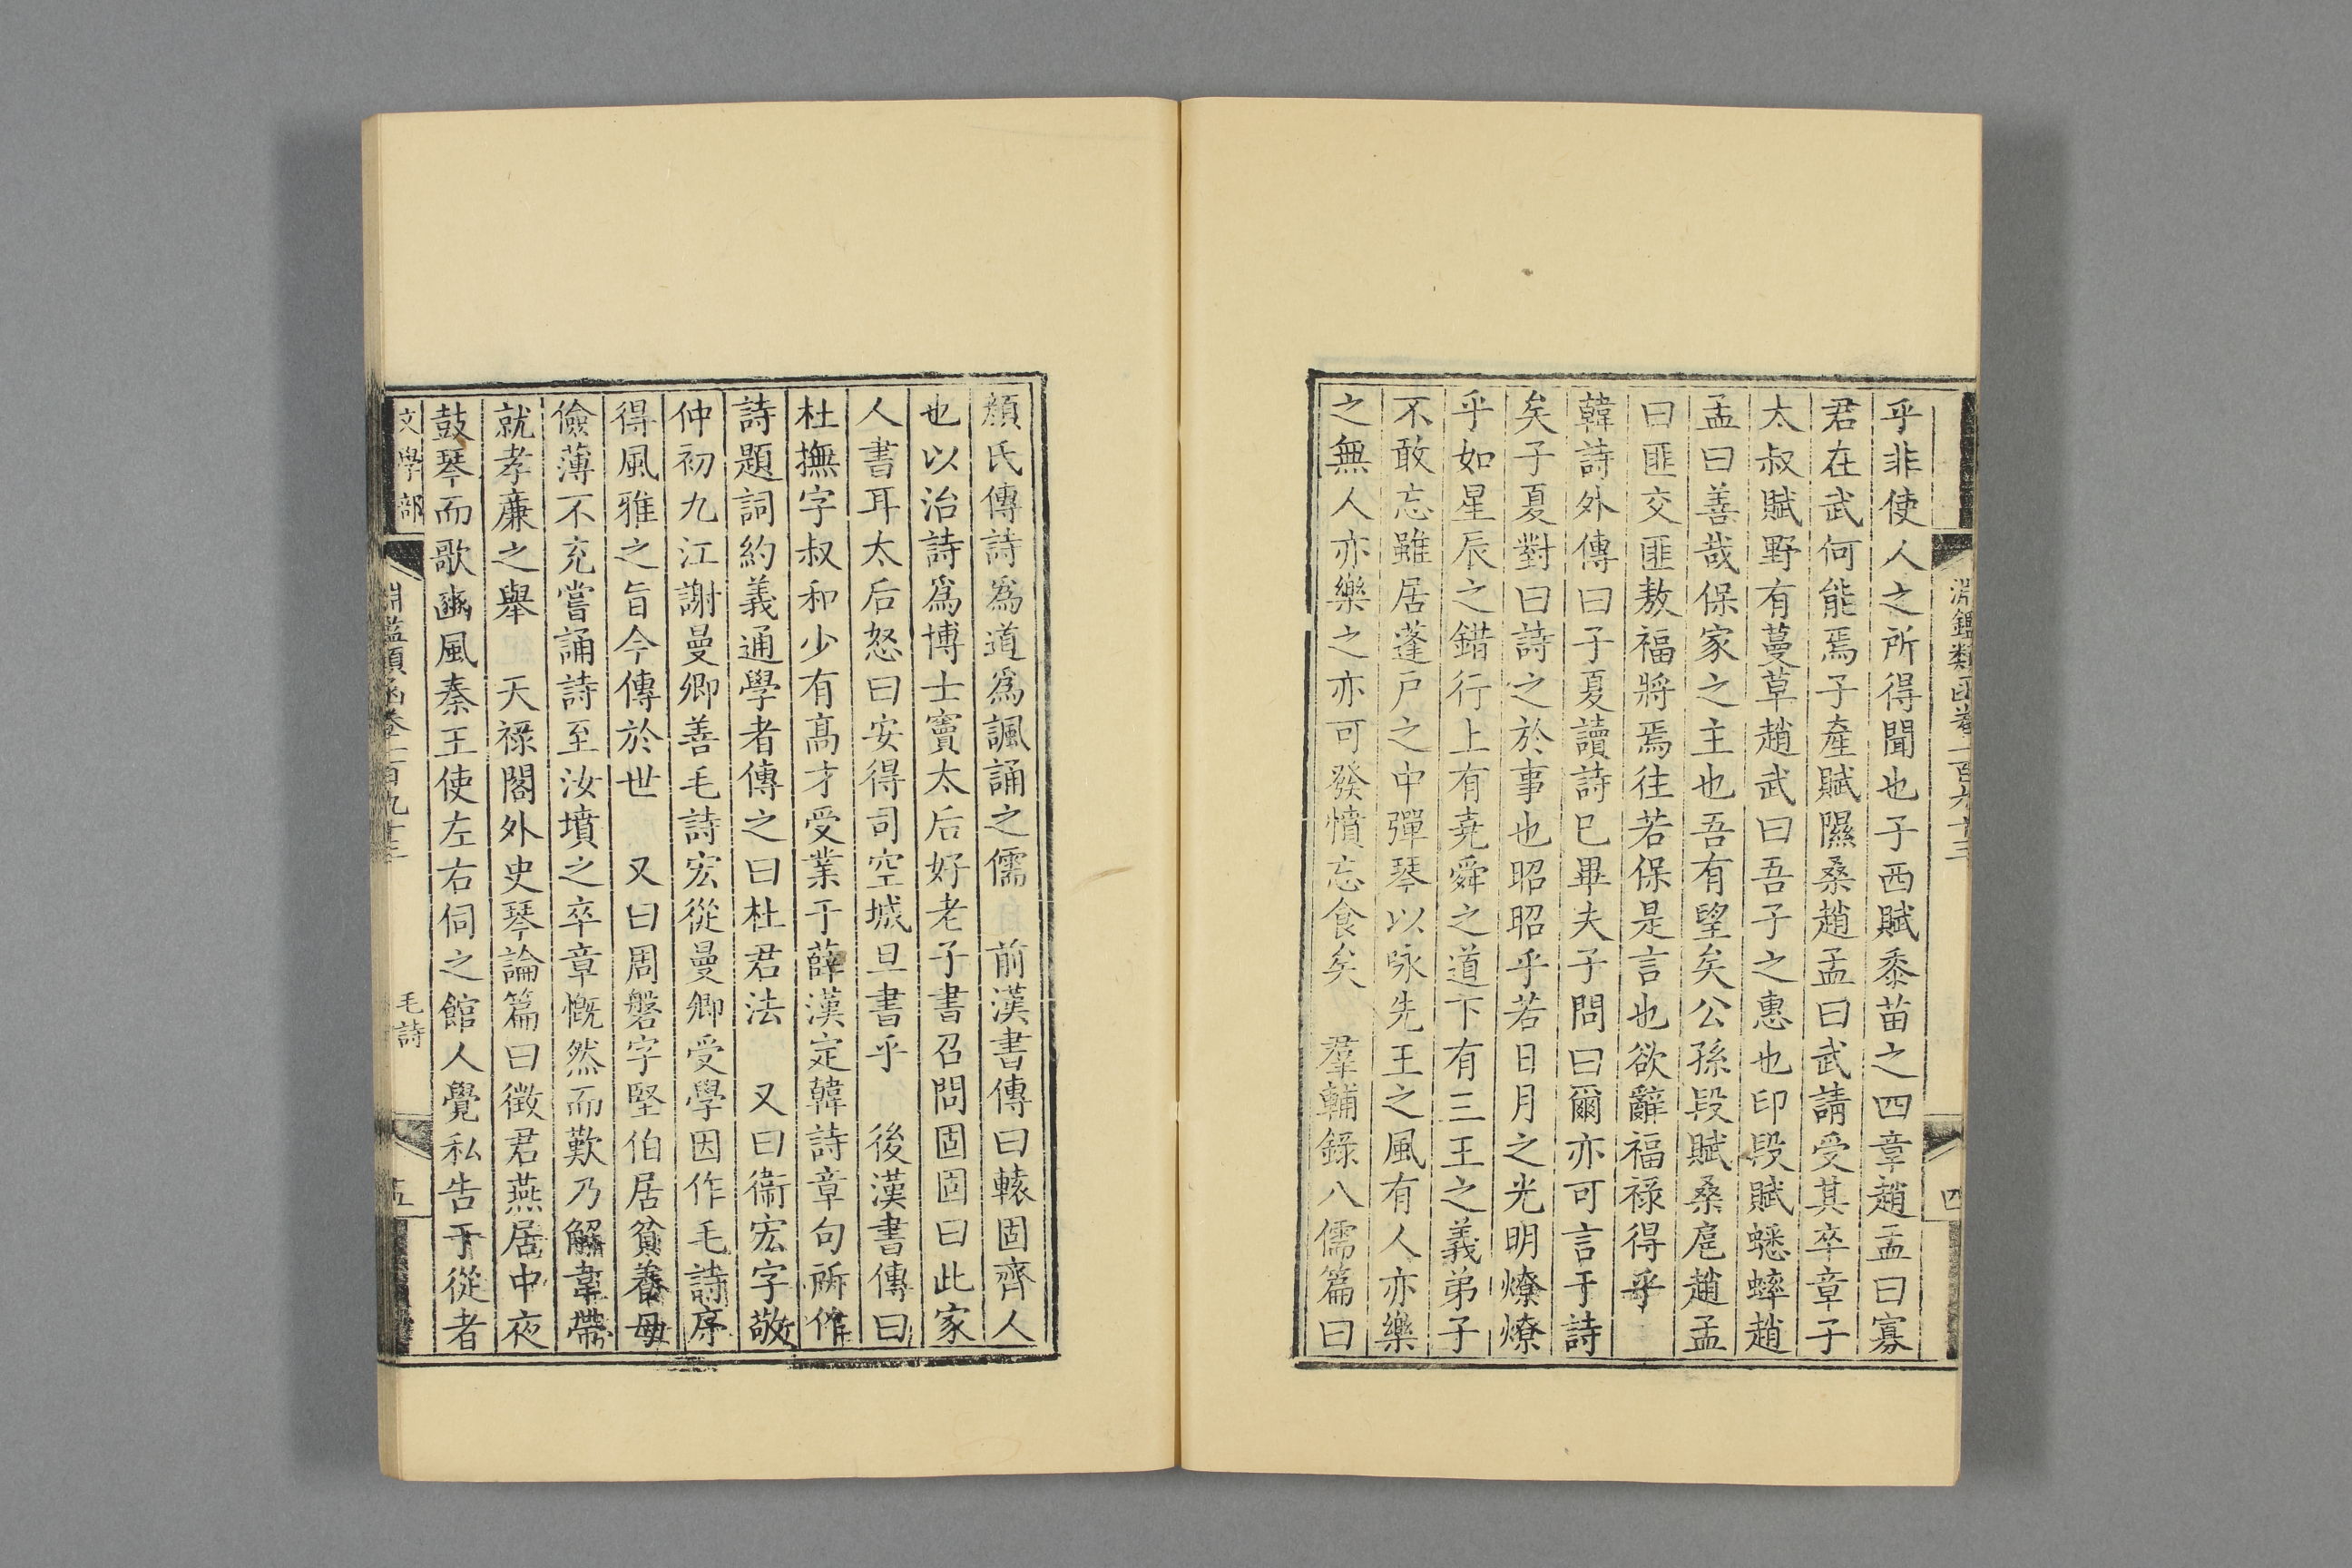 淵鑑類函卷一百九十三
四
乎非使人之所得聞也子西賦黍苗之四章趙孟曰寡
君在武何能焉子產賦隰桑趙孟曰武請受其卒章子
太叔賦野有蔓草趙武曰吾子之惠也印段賦蟋蟀趙
孟曰善哉保家之主也吾有望矣公孫段賦桑扈趙孟
曰匪交匪敖福將焉往若保是言也欲辭福祿得乎
韓詩外傳曰子夏讀詩已畢夫子問曰爾亦可言于詩
矣子夏對曰詩之於事也昭昭乎若日月之光明燎燎
乎如星辰之錯行上有堯舜之道下有三王之義弟子
不敢忘雖居蓬戶之中彈琴以咏先王之風有人亦樂
之無人亦樂之亦可發憤忘食矣 羣輔錄八儒篇曰
顏氏傳詩爲道爲諷誦之儒 前漢書傳曰轅固齊人
也以治詩爲博士竇太后好老子書召問固固曰此家
人書耳太后怒曰安得司空城旦書乎 後漢書傳曰
杜撫字叔和少有高才受業于薛漢定韓詩章句所作
詩題詞約義通學者傳之曰杜君法 又曰衞宏字敬
仲初九江謝曼卿善毛詩宏從曼卿受學因作毛詩序
得風雅之旨今傳於世 又曰周磐字堅伯居貧養母
儉薄不充嘗誦詩至汝墳之卒章慨然而歎乃解韋帶
就孝廉之舉 天祿閣外史琴論篇曰徵君燕居中夜
鼓琴而歌豳風秦王使左右伺之館人覺私告于從者
文學部 淵鑑類函卷一百九十三 毛詩 五